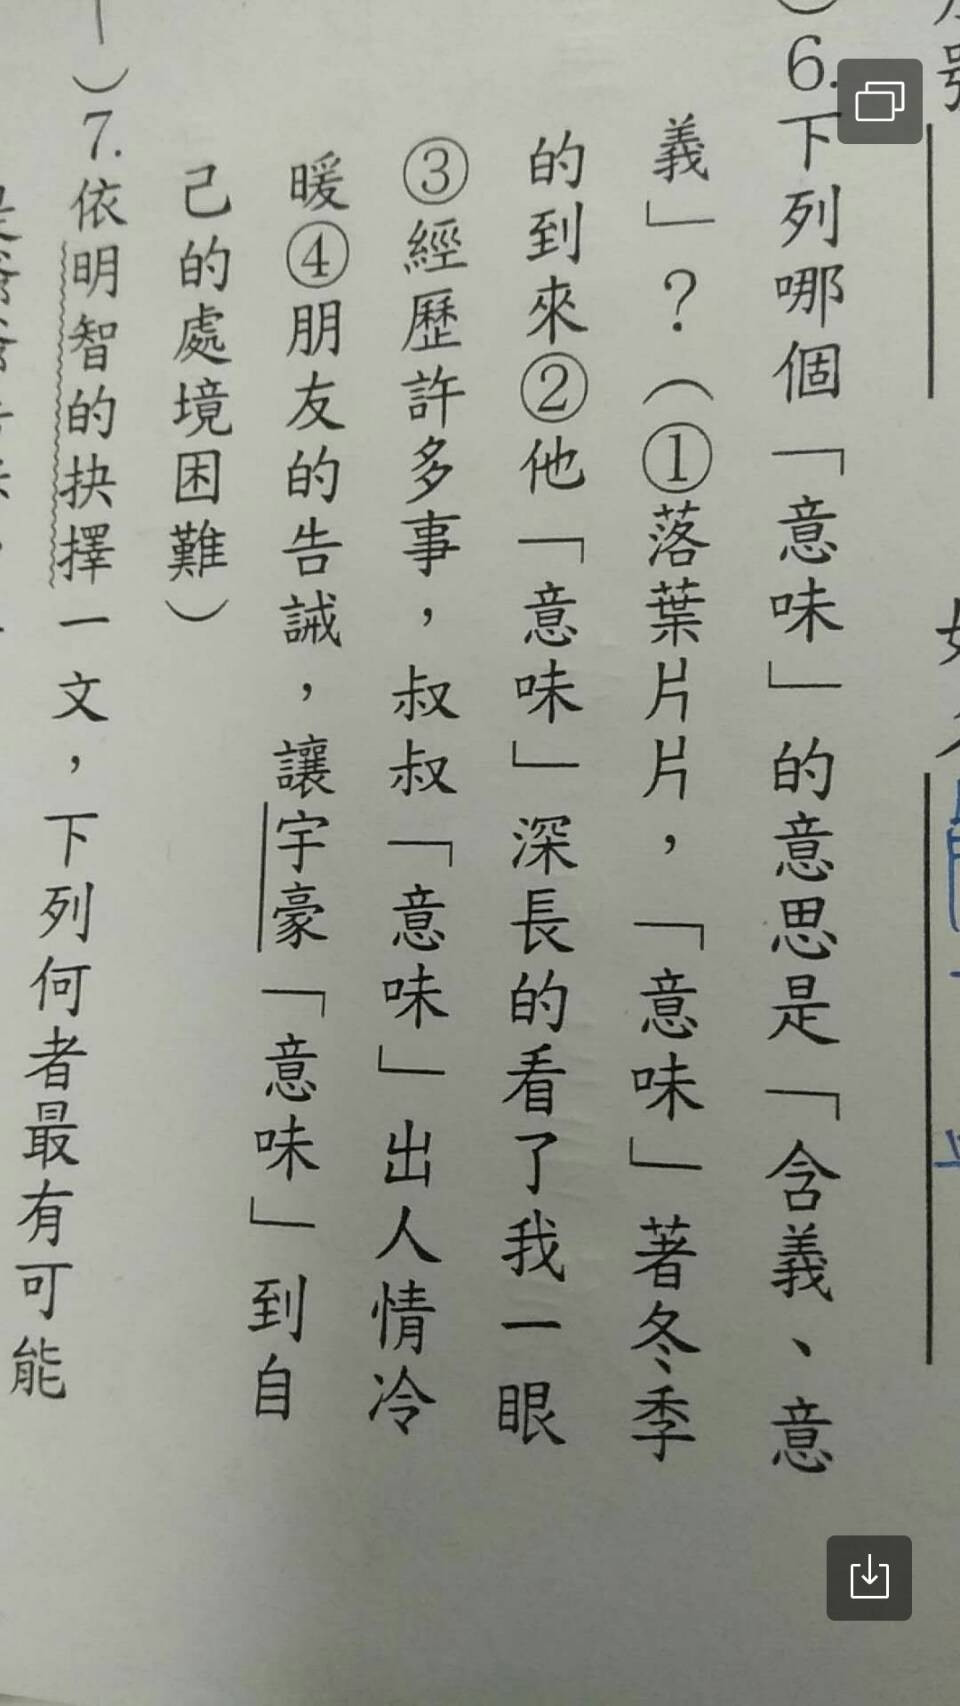 6.下列哪個「意味」的意思是「含義、意
義」？（①落葉片片，「意味」著冬季
的到來②他「意味」深長的看了我一眼
③經歷許多事，叔叔「意味」出人情冷
暖④朋友的告誡，讓宇豪「意味」到自
己的處境困難）
）7.依明智的抉擇一文，下列何者最有可能